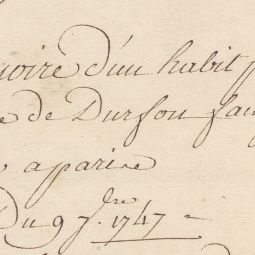 moire d'un habit
de Dursou
a paris
Du 9 7bre 1747